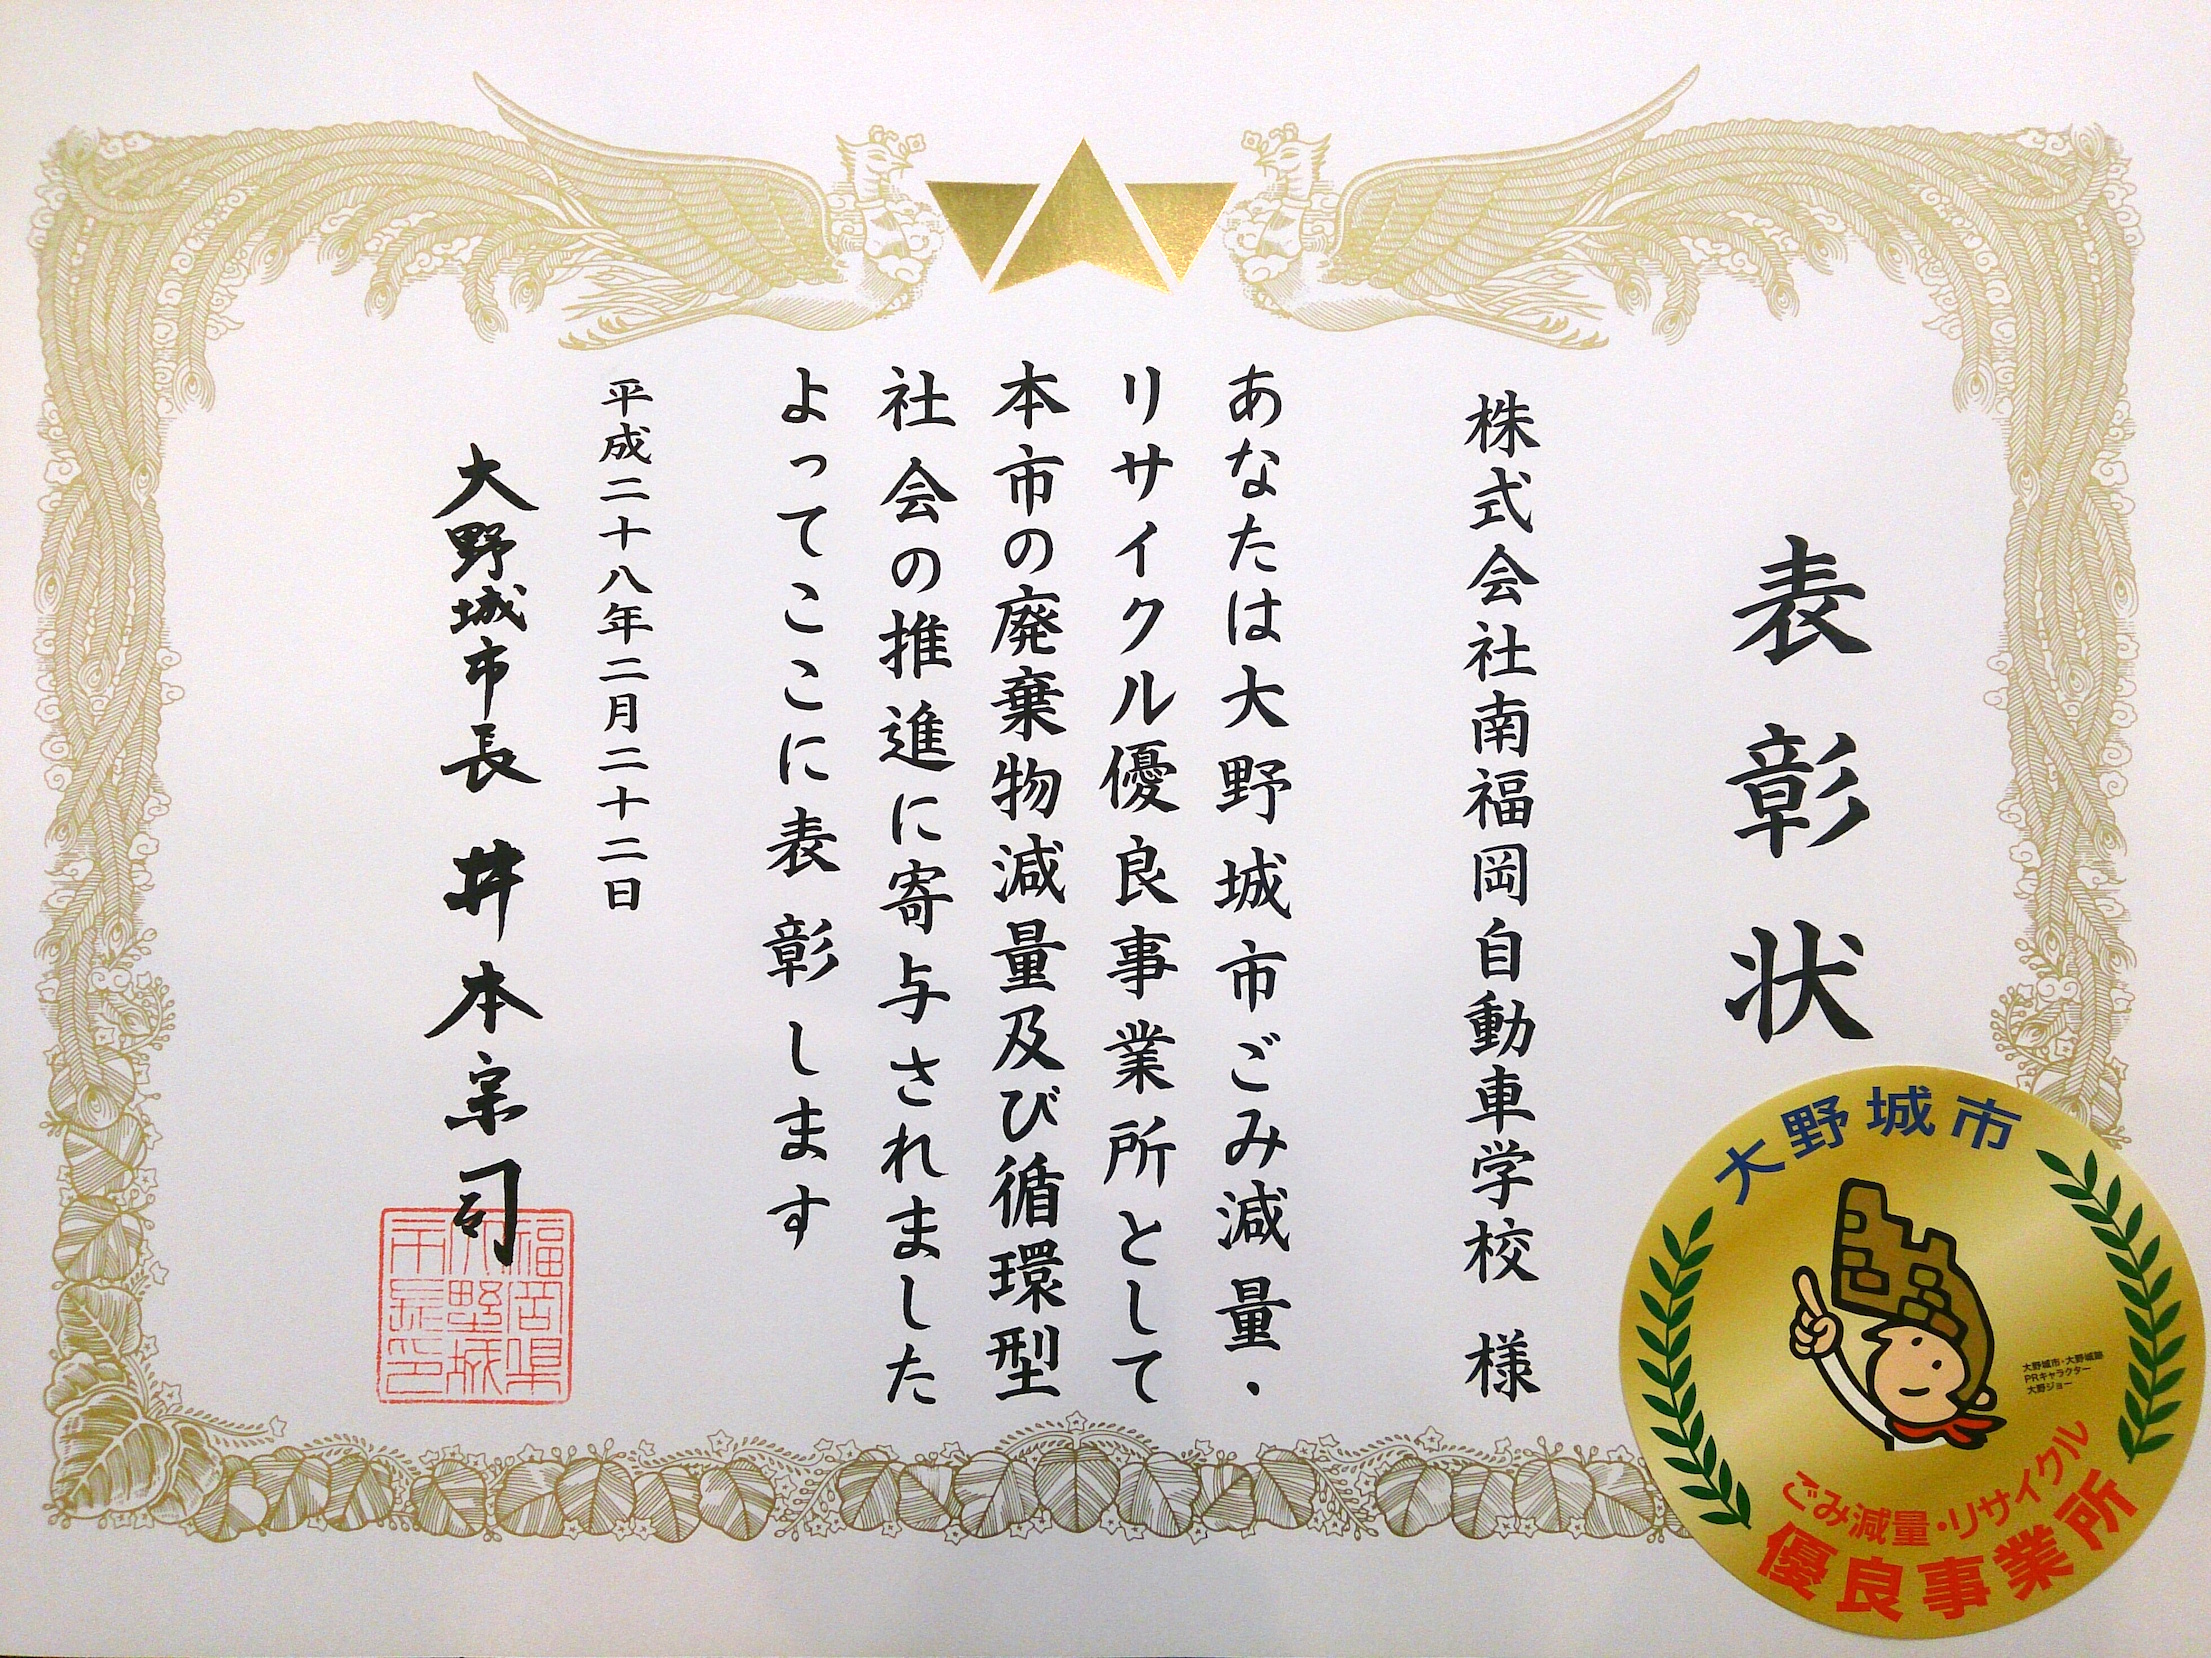 表彰状
株式会社南福岡自動車学校 様
あなたは大野城市ごみ減量・
リサイクル優良事業所として
本市の廃棄物減量及び循環型
社会の推進に寄与されました
よってここに表彰します
平成二十八年二月二十二日
大野城市長 井本宗司
福岡県
大野城
市長印
大野城市
大野城市・大野城跡
PRキャラクター
大野ジョー
ごみ減量・リサイクル
優良事業所